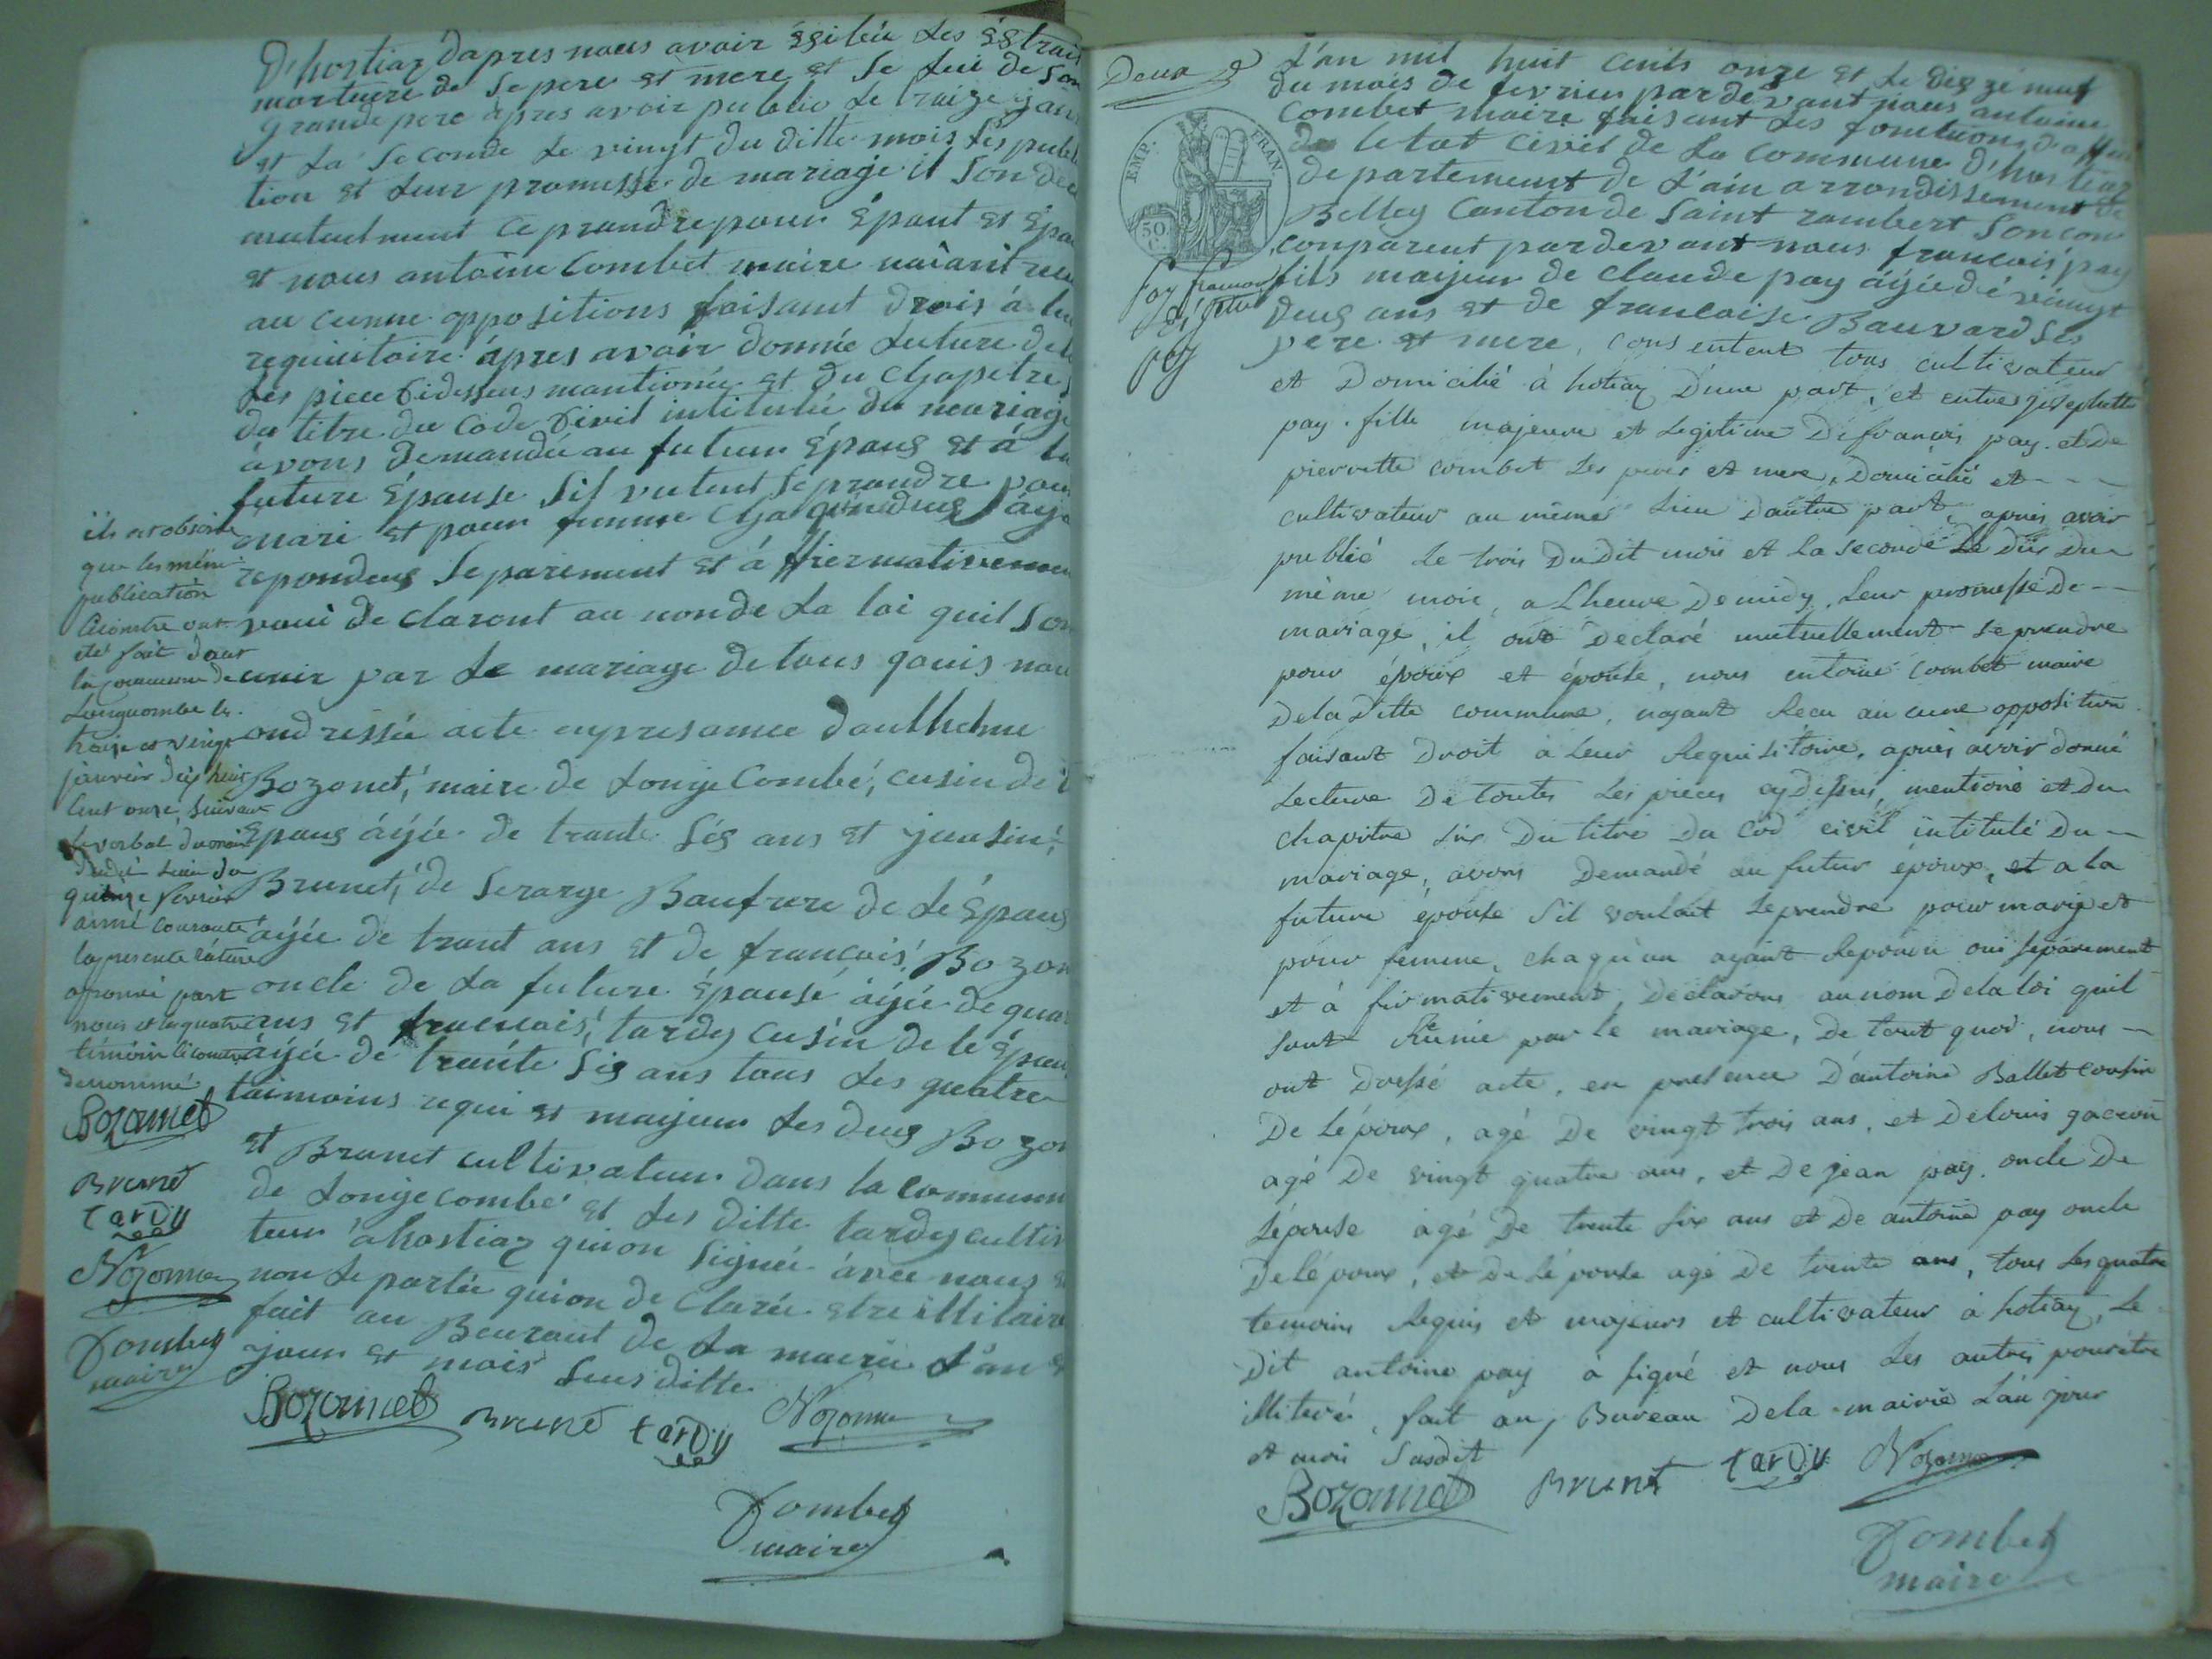 D'hostiaz d'apres naus avoir éxibéé les éstrait
mortuere de se pere et mere et le lui de son
grande pere apres avoir publié le traize jan
et la seconde le vingt du ditte mois les publi
tion et leur promesse de mariage il son dec
mutuelment ce prandre pour épaut et épau
et nous antoine Combet maire naiant recu
au cunne oppositions faisant drois á leu
requicitoire ápres avoir donnée luture de
les piece ci dessus mantionée et du chapitre
du titre du Code Civil intitulé du mariage
ávons demandée au futeur épaus et á la
future épause sil vutent se prandre pour
mari et pour fumme
repondeus separiment et á ffiermativemen
voui de clarent au nonde la loi quil son
unir par le mariage de tous qouis nau
ondressée acte enpresance d'authelme
Bozonet, maire de Longe Combé, cusin de l
épaus áijée de trante sés ans et
Brunet, de Serarge Baufrere de le épaus
áijée de trant ans et de francais Bozon
oncle de la future épausé áijée de qua
ans et francais, tardy cusin de lé épau
áijée de traute sis ans tous les quatre
taimoins requi et maijeur les deus Bozon
et Brunet cultivateur dans la commun
de Longecombé et les ditte tardy cultiv
teur á hostiaz quion signéé ávec nous
non le partée quion de clarée etre illitaire
fait au Beuraut de la mairie d'an
jour et mois sus ditte
ils
que les mêm
publication
ont
été fait dans
la commune de
Longuombe le
traize et vingt
janvier dix huit
cent onze, suivant
le verbal du maire
dudit lieu du
quinze fevrier
anné courante
la presente rature
aprouvé part
nous et les quatre
témoin
denommé
Bozonnet
Brunet
tardy
Combet
maire
Bozonnet Brunet tardy
Combet
maire
Deux
L'an mil huit cents onze et le dis zé neuf
du mois de fevrier par devant naus antoine
Combet maire faisant les fonctions d'offici
de letat civil de la Commune d'hostiaz
departement de l'ain arrondissement de
Belley Canton de saint rambert son com
conparent pardevant nous francois pay
fils maijeur de Claude pay áijée dé vingt
deus ans et de francaise Bauvard ses
pere et mere, consentent tous cultivateur
et domicilié à hotiaz d'une part, et entre josephette
pay fille majeure et legitime de francois pay et de
pierrette combet ses peres et mere, domicilié et
cultivateur au même lieu d'autre part, apres avoir
publié le trois dudit mois et la seconde le dix du
même mois, a lheure de midy, leur promesse de
mariage, il ont declaré mutuellement se prendre
pour époux et épouse, nous entoine combet maire
de la ditte commune, nayant recu aucune opposition
faisant droit à leur requisitoire, après avoir donné
lecture de toutes les pieces cy dessus, mentioné et du
chapitre six du titre du cod civil intitulé du
mariage, avons demandé au futur époux, et a la
future épouse s'il voulait se prendre pour marig et
pour femme, chaqu'un ayant repondu oui séparement
et à firmativement, déclarons au nom de la loi quil
sont réunie par le mariage, de tout quoi, nous
ont dressé acte, en presence d'antoine Ballet cousin
de lépoux, agé de vingt trois ans, et de louis
agé de vingt quatre ans, et de jean pay oncle de
lépouse agé de trente six ans et de antoine pay oncle
de lépoux, et de lé pouse agé de trente ans, tous les quatre
temoins requis et majeurs et cultivateur à hotiaz, le
dit antoine pay à signé et nous les autres pour être
illiteré, fait au Bureau de la mairie l'an jour
et mois susdit
Bozonnet Brunet tardy
Combet
maire
EMP. FRAN.
50
C.
pay francois
pay